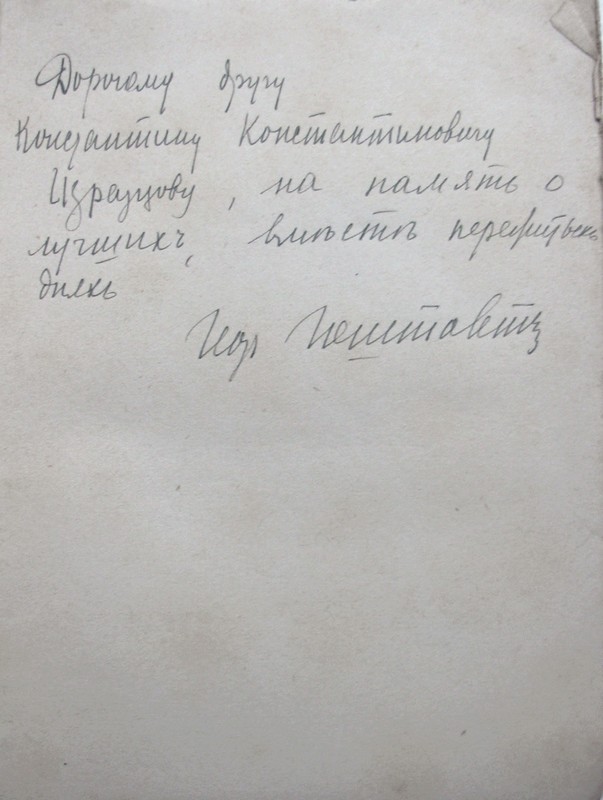 Дорогому другу
Константину Константиновичу
Изразцову, на память о
лучшихъ, вмѣстѣ пережитыхъ
дняхъ